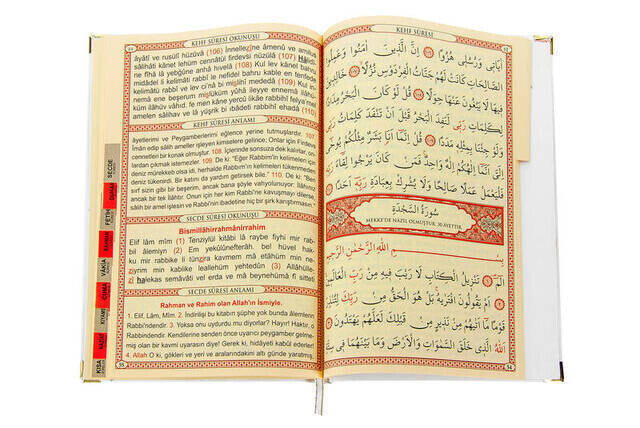 KEHF SÛRESİ OKUNUŞU
âyâtî ve rusulî hüzüvâ (106) İnnellezîne âmenû ve amilus
sâlihâti kânet lehüm cennâtül firdevsi nüzülâ (107) Hâlidî-
ne fîhâ lâ yebğûne anhâ hıvelâ (108) Kul lev kânel bahru
midâdel li kelimâti rabbî le nefidel bahru kable en tenfede
kelimâtü rabbî ve lev ci'nâ bi mislihî mededâ (109) Kul in-
nemâ ene beşerum mislüküm yûhâ ileyye ennemâ ilâhü-
küm ilâhüv vâhid, fe men kâne yercû likâe rabbihî felya'mel
amelen sâlihav ve lâ yüşrik bi ıbâdeti rabbihî ehadâ (110)
KEHF SÛRESİ ANLAMI
âyetlerimi ve Peygamberlerimi eğlence yerine tutmuşlardır. 107.
İman edip sâlih ameller işleyen kimselere gelince; Onlar için Firdevs
cennetleri bir konak olmuştur. 108. İçlerinde sonsuza dek kalırlar, on-
lardan çıkmak istemezler. 109. De ki: "Eğer Rabbim'in kelimeleri için
deniz mürekkep olsa idi, herhalde Rabbim'in kelimeleri tükenmeden
deniz tükenirdi. Bir katını da yardım getirsek bile." 110. De ki: "Ben
sırf sizin gibi bir beşerim, ancak bana şöyle vahyolunuyor: İlâhınız
ancak bir tek ilâhtır. Onun için her kim Rabbi'ne kavuşmayı dilerse
sâlih amel işlesin ve Rabbi'nin ibâdetine hiç bir şirk karıştırmasın."
SECDE SÛRESİ OKUNUŞU
Bismillâhirrahmânirrahîm
Elif lâm mîm (1) Tenzîlül kitâbi lâ raybe fîyhi mir rab-
bil âlemîyn (2) Em yekûlûnefterâh, bel hüvel hak-
ku mir rabbike li tünzira kavmem mâ etâhüm min ne-
ziyrim min kablike leallehüm yehtedûn (3) Allâhülle-
zî halekas semâvâti vel erda ve mâ beynehümâ fî sitteti
SECDE SÛRESİ ANLAMI
Rahman ve Rahim olan Allah'ın İsmiyle.
1. Elif, Lâm, Mîm. 2. İndirilişi bu kitabın şüphe yok bunda âlemlerin
Rabbi'ndendir. 3. Yoksa onu uydurdu mu diyorlar? Hayır! Haktır, o
Rabbindendir. Kendilerine senden önce uyarıcı peygamber gelme-
miş olan bir kavmi uyarasın diye! Gerek ki, hidâyeti kabûl ederler!
4. Allah O ki, gökleri ve yeri ve aralarındakini altı günde yaratmış,
55
SECDE
DUHAN
FETİH
RAHMAN
VAKIA
CUMA
KIYAME
KISA
KEHF SÛRESİ
اٰيَاتٖي وَرُسُلٖي هُزُوًا ﴿١٠٦﴾ اِنَّ الَّذٖينَ اٰمَنُوا وَعَمِلُوا
الصَّالِحَاتِ كَانَتْ لَهُمْ جَنَّاتُ الْفِرْدَوْسِ نُزُلًا ﴿١٠٧﴾ خَالِدٖينَ
فٖيهَا لَا يَبْغُونَ عَنْهَا حِوَلًا ﴿١٠٨﴾ قُلْ لَوْ كَانَ الْبَحْرُ مِدَادًا
لِكَلِمَاتِ رَبّٖي لَنَفِدَ الْبَحْرُ قَبْلَ اَنْ تَنْفَدَ كَلِمَاتُ رَبّٖي
وَلَوْ جِئْنَا بِمِثْلِهٖ مَدَدًا ﴿١٠٩﴾ قُلْ اِنَّمَا اَنَا بَشَرٌ مِثْلُكُمْ يُوحٰى
اِلَيَّ اَنَّمَا اِلٰهُكُمْ اِلٰهٌ وَاحِدٌ فَمَنْ كَانَ يَرْجُوا لِقَاءَ رَبِّهٖ
فَلْيَعْمَلْ عَمَلًا صَالِحًا وَلَا يُشْرِكْ بِعِبَادَةِ رَبِّهٖ اَحَدًا ﴿١١٠﴾
سُورَةُ السَّجْدَةِ
MEKKE'DE NAZİL OLMUŞTUR. 30 AYETTİR.
بِسْمِ اللّٰهِ الرَّحْمٰنِ الرَّحٖيمِ
الٓمٓ ﴿١﴾ تَنْزٖيلُ الْكِتَابِ لَا رَيْبَ فٖيهِ مِنْ رَبِّ الْعَالَمٖينَ ﴿٢﴾
اَمْ يَقُولُونَ افْتَرٰيهُ بَلْ هُوَ الْحَقُّ مِنْ رَبِّكَ لِتُنْذِرَ
قَوْمًا مَا اَتٰيهُمْ مِنْ نَذٖيرٍ مِنْ قَبْلِكَ لَعَلَّهُمْ يَهْتَدُونَ ﴿٣﴾
اَللّٰهُ الَّذٖي خَلَقَ السَّمٰوَاتِ وَالْاَرْضَ وَمَا بَيْنَهُمَا فٖي
54